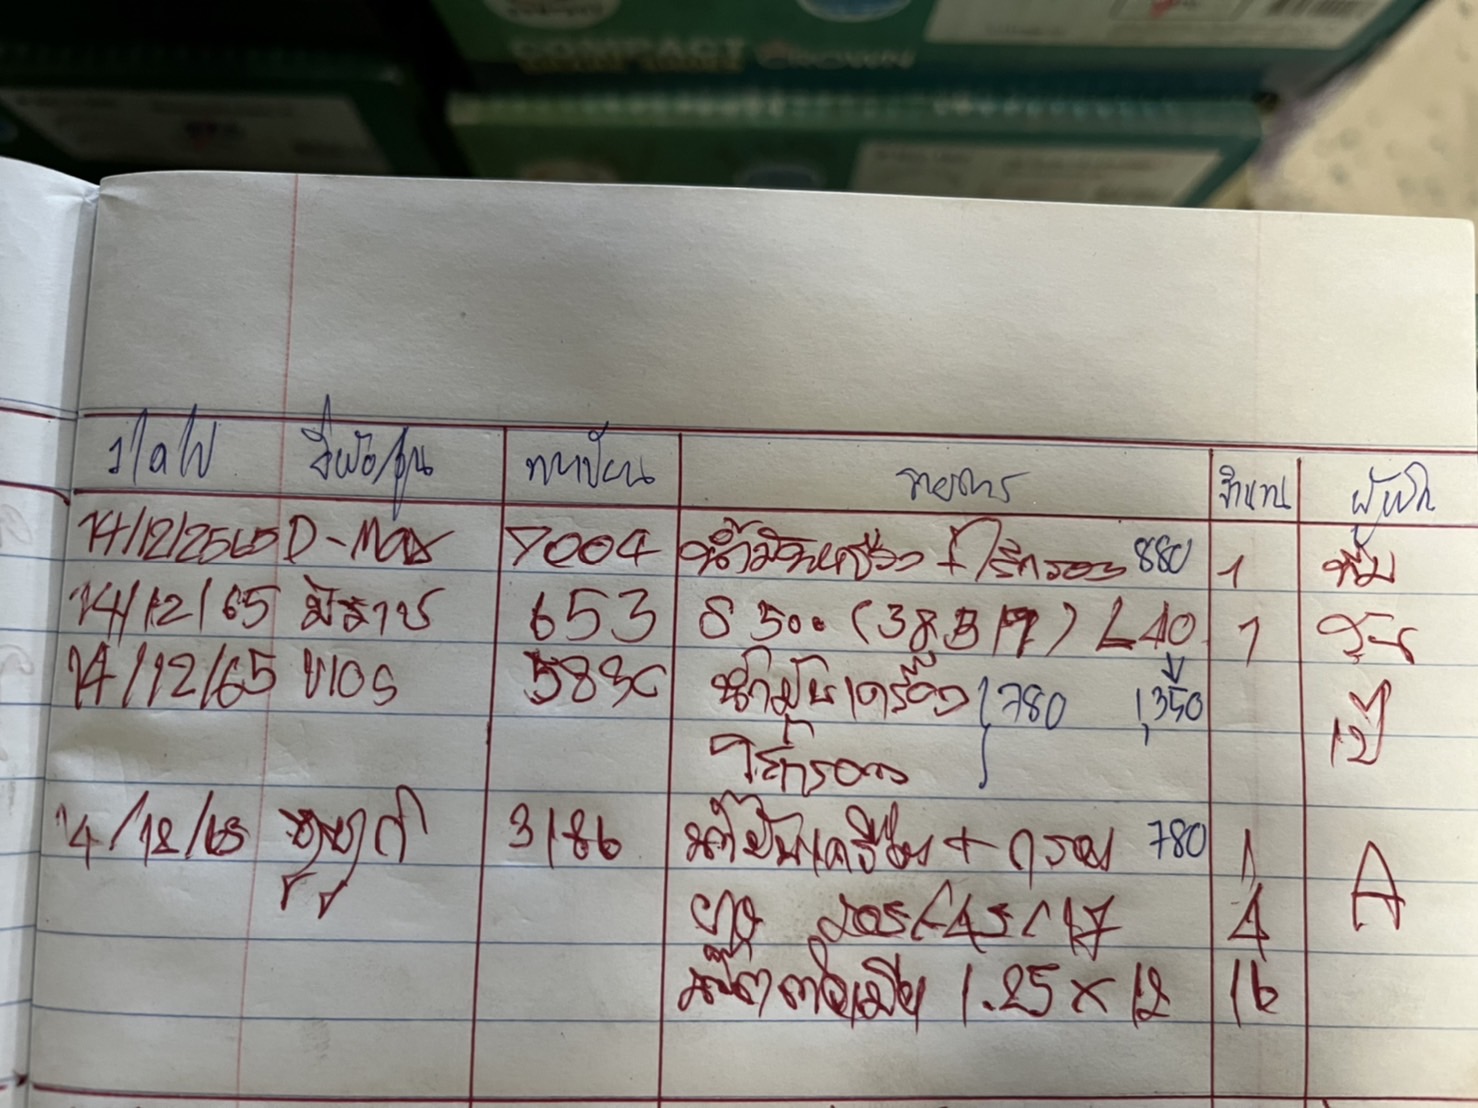 COMPACT
CROWN
ว/ด/ป ยี่ห้อ/รุ่น ทะเบียน รายการ จำนวน ผู้เบิก
14/12/2565 D-Max 7004 น้ำมันเครื่อง + ไส้กรอง 880 1 ทีม
14/12/65 มิราช 653 S 500 (38 B 19) L 40 1
14/12/65 VIOS 5830 น้ำมันเครื่อง 780 1,350
ไส้กรอง
14/12/65 3186 น้ำมันเครื่อง + กรอง 780 1 A
ยาง 205/45/17 4
น๊อตตัวเมีย 1.25 x 12 16